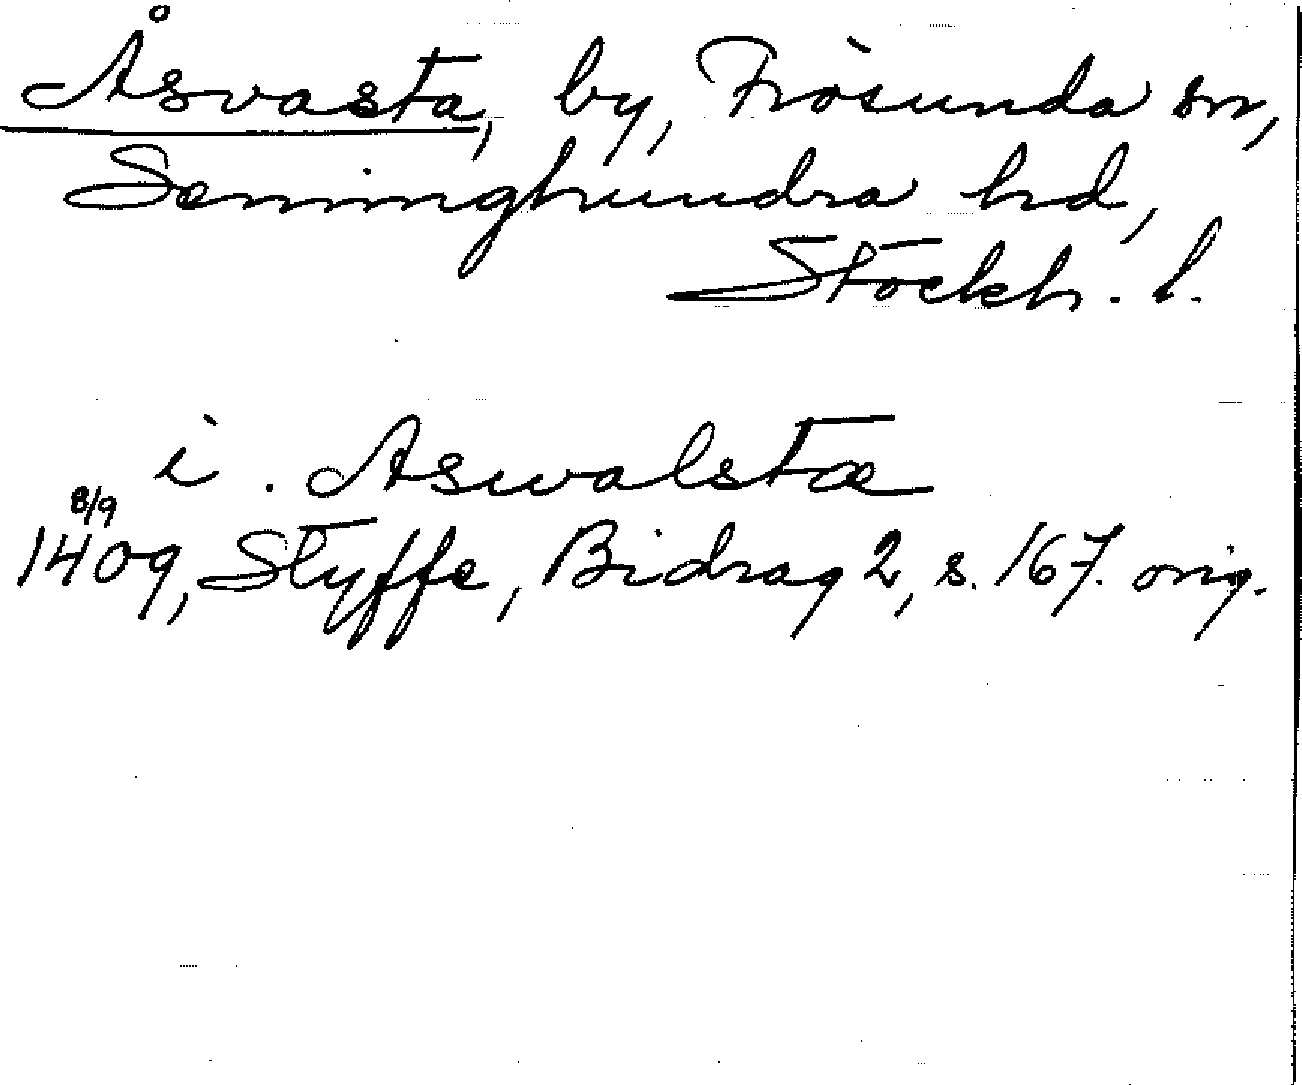 Åsvasta, by, Frösunda sn,
Seminghundra hd,
Stockh. l.
i . Aswalstæ
8/9
1409, Styffe, Bidrag 2, s. 167. orig.